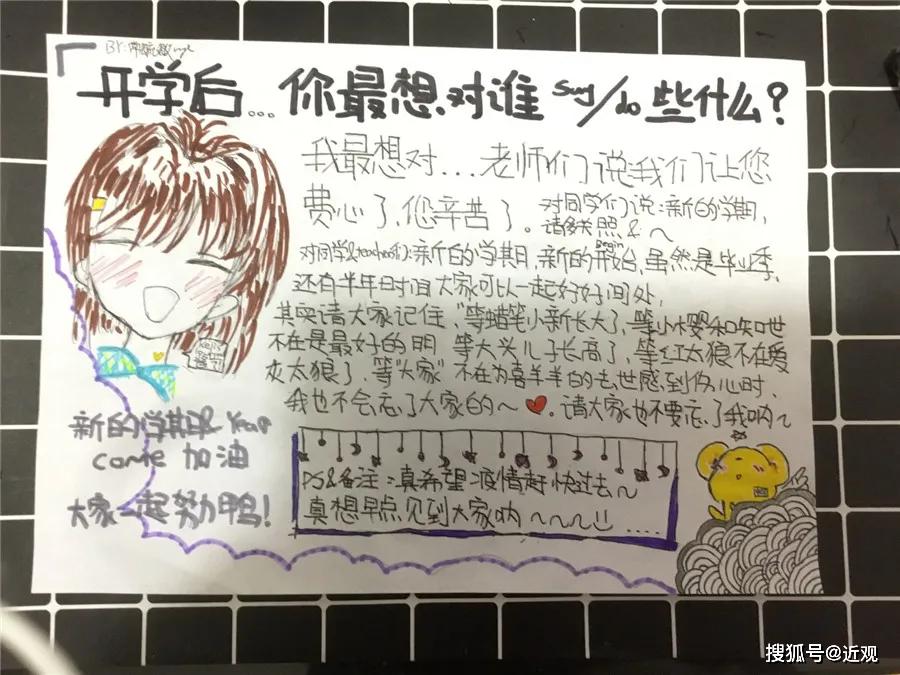 BY:
开学后...你最想对谁 say/do 些什么?
我最想对...老师们说:我们让您
费心了,您辛苦了。对同学们说:新的学期,
请多关照&~
对同学&teachers们:新的学期,新的开始,虽然是毕业季,
Begin
还有半年时间大家可以一起好好间处,
其实请大家记住,"等蜡笔小新长大了,等小樱和知世
不在是最好的朋,等大头儿子长高了,等红太狼不在爱
灰太狼了,等"大家"不在为喜羊羊的去世感到伤心时,
我也不会忘了大家的~❤.请大家也不要忘了我呐~
新的学期&Year
come 加油
大家一起努力鸭!
PS&备注:真希望疫情赶快过去~
真想早点见到大家呐~~~ .....
搜狐号@近观